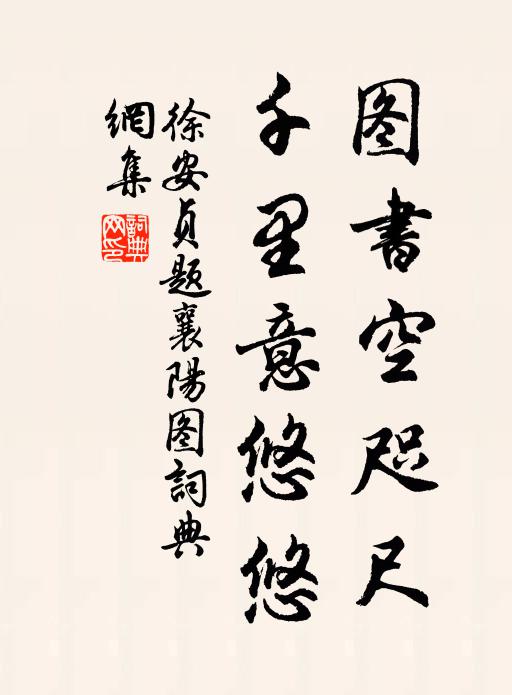 图書空咫尺
千里意悠悠
徐安贞题襄陽图詞典
網集
詞典
网印